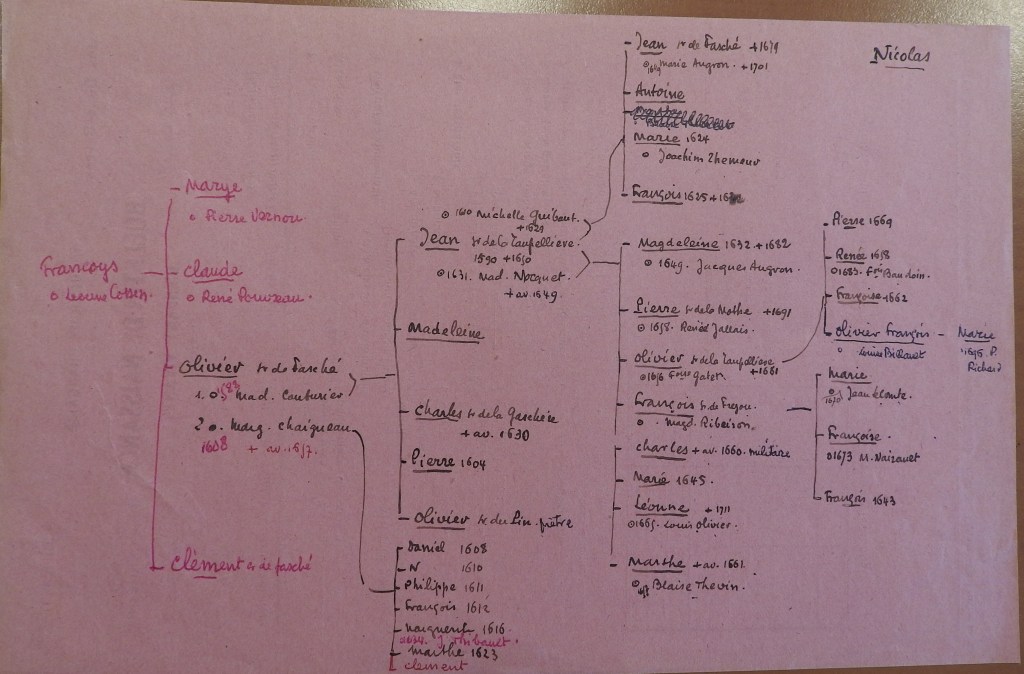 Nicolas
Françoys
Marye
o Pierre
Claude
o René
Olivier sr de Fasché
1. o 1583 Mad. Couturier
2 o. Marg. Chaigneau
1608 + av. 1617.
Clément sr de fasché
o 1610 Michelle Guibaut.
+ 1629
Jean sr de la Taupellière.
1590 + 1650
o 1631. Mad. Nocquet.
+ av. 1649.
Madeleine
Charles sr de la Gaschère
+ av. 1630
Pierre 1604
Olivier sr du Pin. prêtre
Daniel 1608
N 1610
Philippe 1611
François 1612
1616.
1634. J. Thibault.
Marthe 1623
clement
Jean sr de Fasché + 1679
o 1649 Marie Augron. + 1701
Antoine
Marie 1624
o Joachim
François 1625 +
Magdeleine 1632 + 1682
o 1649. Jacques Augron.
Pierre sr de la Mothe + 1691
o 1658. Renée Jallais.
Olivier sr de la Taupellière
+ 1661
o 1656 Fçoise
François sr de
o . Magd.
Charles + av. 1660. militaire
Marie 1645.
Léonne + 1711
o 1665. Louis Olivier.
Marthe + av. 1661.
o Blaise Thevin.
Pierre 1669
Renée 1658
o 1683. Fçois Baudoin.
Françoise 1662
Olivier François – Marie
o Louise
1696 P.
Richard
Marie
o 1670 Jean
Françoise.
o 1673 M.
François 1643